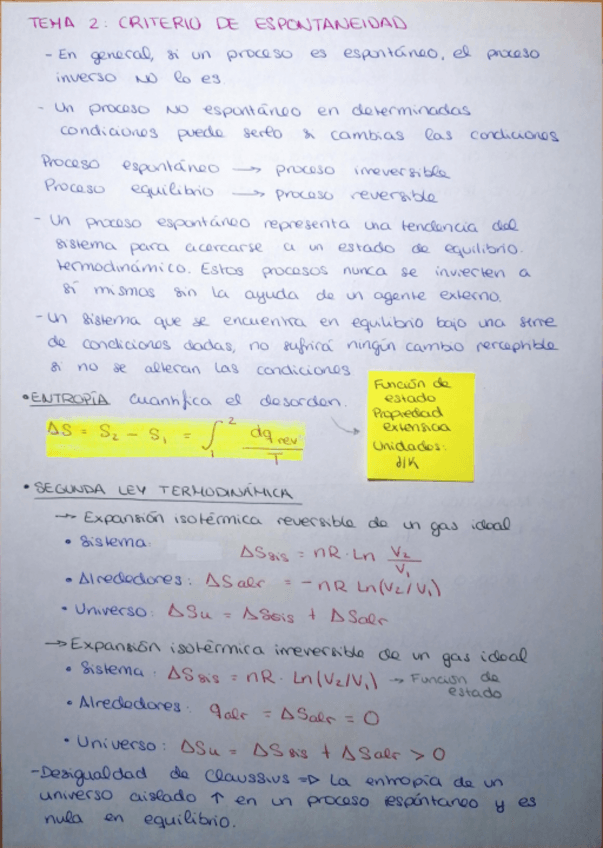 TEMA 2: CRITERIO DE ESPONTANEIDAD
- En general, si un proceso es espontáneo, el proceso
inverso NO lo es
- Un proceso NO espontáneo en determinadas
condiciones puede serlo si cambias las condiciones
Proceso espontáneo → proceso irreversible
Proceso equilibrio → proceso reversible
- Un proceso espontáneo representa una tendencia del
sistema para acercarse a un estado de equilibrio.
termodinámico. Estos procesos nunca se invierten a
sí mismos sin la ayuda de un agente externo.
- Un sistema que se encuentra en equilibrio bajo una serie
de condiciones dadas, no sufrirá ningún cambio perceptible
si no se alteran las condiciones
• ENTROPÍA cuantifica el desorden.
ΔS = S₂ - S₁ = ∫₁² dq rev / T
Función de
estado
Propiedad
extensiva
Unidades:
J/K
• SEGUNDA LEY TERMODINÁMICA
→ Expansión isotérmica reversible de un gas ideal
• Sistema: ΔSsis = nR·Ln V₂/V₁
• Alrededores: ΔSalr = -nR Ln(V₂/V₁)
• Universo: ΔSu = ΔSsis + ΔSalr
→ Expansión isotérmica irreversible de un gas ideal
• Sistema: ΔSsis = nR· Ln(V₂/V₁) → Función de
estado
• Alrededores: qalr = ΔSalr = 0
• Universo: ΔSu = ΔSsis + ΔSalr > 0
- Desigualdad de Claussius ⇒ La entropía de un
universo aislado ↑ en un proceso espóntaneo y es
nula en equilibrio.